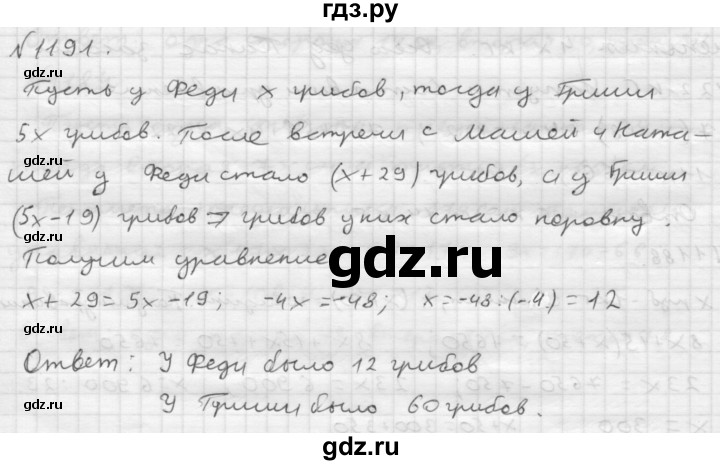 гдз.ру
№1191.
Пусть у Феди x грибов, тогда у Гриши
5x грибов. После встречи с Машей и Ната-
шей у Феди стало (x+29) грибов, а у Гриши
(5x-19) грибов ⇒ грибов у них стало поровну.
Получим уравнение
x+29=5x-19; -4x=-48; x=-48:(-4)=12
Ответ: У Феди было 12 грибов
У Гриши было 60 грибов.
gdz.ru
gdz.ru
gdz.ru
gdz.ru
gdz.ru
gdz.ru
gdz.ru
gdz.ru
gdz.ru
gdz.ru
gdz.ru